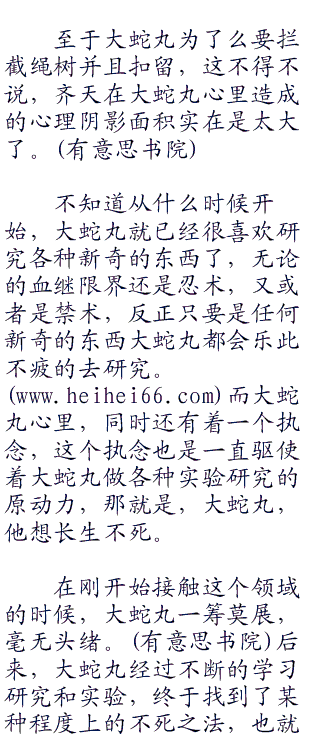 至于大蛇丸为了么要拦
截绳树并且扣留，这不得不
说，齐天在大蛇丸心里造成
的心理阴影面积实在是太大
了。(有意思书院)
不知道从什么时候开
始，大蛇丸就已经很喜欢研
究各种新奇的东西了，无论
的血继限界还是忍术，又或
者是禁术，反正只要是任何
新奇的东西大蛇丸都会乐此
不疲的去研究。
(www.heihei66.com)而大蛇
丸心里，同时还有着一个执
念，这个执念也是一直驱使
着大蛇丸做各种实验研究的
原动力，那就是，大蛇丸，
他想长生不死。
在刚开始接触这个领域
的时候，大蛇丸一筹莫展，
毫无头绪。(有意思书院)后
来，大蛇丸经过不断的学习
研究和实验，终于找到了某
种程度上的不死之法，也就